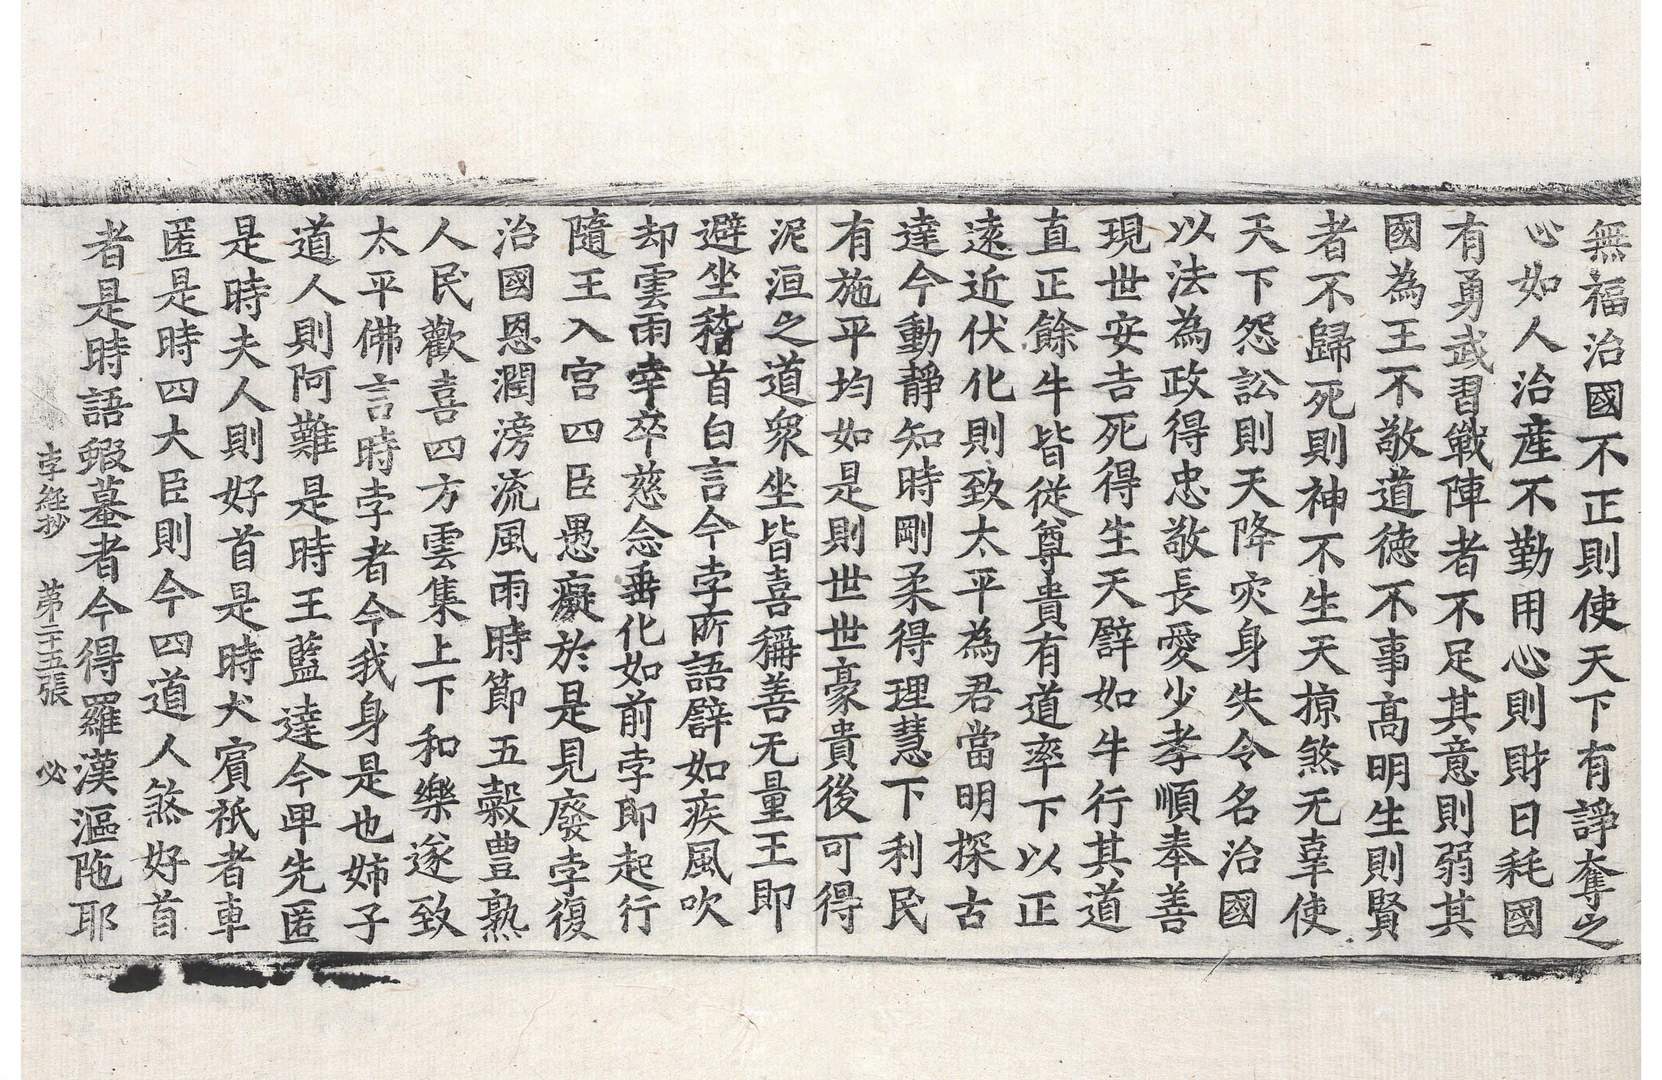 無福治國不正則使天下有諍奪之
心如人治產不勤用心則財日耗國
有勇武習戰陣者不足其意則弱其
國為王不敬道德不事高明生則賢
者不歸死則神不生天掠煞无辜使
天下怨訟則天降灾身失令名治國
以法為政得忠敬長愛少孝順奉善
現世安吉死得生天譬如牛行其道
直正餘牛皆從尊貴有道率下以正
遠近伏化則致太平為君當明探古
達今動靜知時剛柔得理慧下利民
有施平均如是則世世豪貴後可得
泥洹之道衆坐皆喜稱善无量王即
避坐稽首白言今孛所語譬如疾風吹
却雲雨幸卒慈念垂化如前孛即起行
隨王入宮四臣愚癡於是見廢孛復
治國恩潤滂流風雨時節五糓豊熟
人民歡喜四方雲集上下和樂遂致
太平佛言時孛者今我身是也姉子
道人則阿難是時王藍達今甲先匿
是時夫人則好首是時犬賓祇者車
匿是時四大臣則今四道人煞好首
者是時語蝦蟇者今得羅漢漚陁耶
孛經抄　第二十五張　必